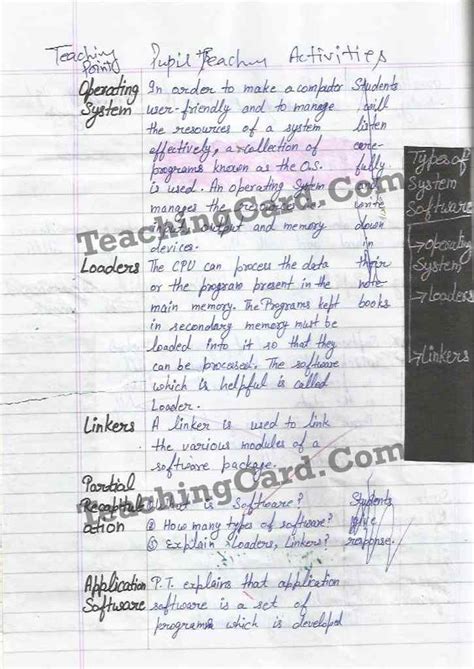 Teaching Point Pupil Teaching Activities
Operating System
In order to make a computer
user-friendly and to manage
the resources of a system
effectively, a collection of
programs known as the O.S.
is used. An operating system
manages the
input output and memory
devices.
Students
will
listen
care-
fully
and
write
down
in
their
note
books
Types of
System
Software
→ Operating
System
→ Loaders
→ Linkers
Loaders
The CPU can process the data
or the program present in the
main memory. The Programs kept
in secondary memory must be
loaded into it so that they
can be processed. The software
which is helpful is called
Loader.
Linkers
A linker is used to link
the various modules of a
software package.
Partial
Recapitulation
What is Software?
② How many types of software?
③ Explain Loaders, Linkers?
Students
give
response.
Application
Software
P.T. explains that application
software is a set of
programs which is developed
TeachingCard.Com
TeachingCard.Com